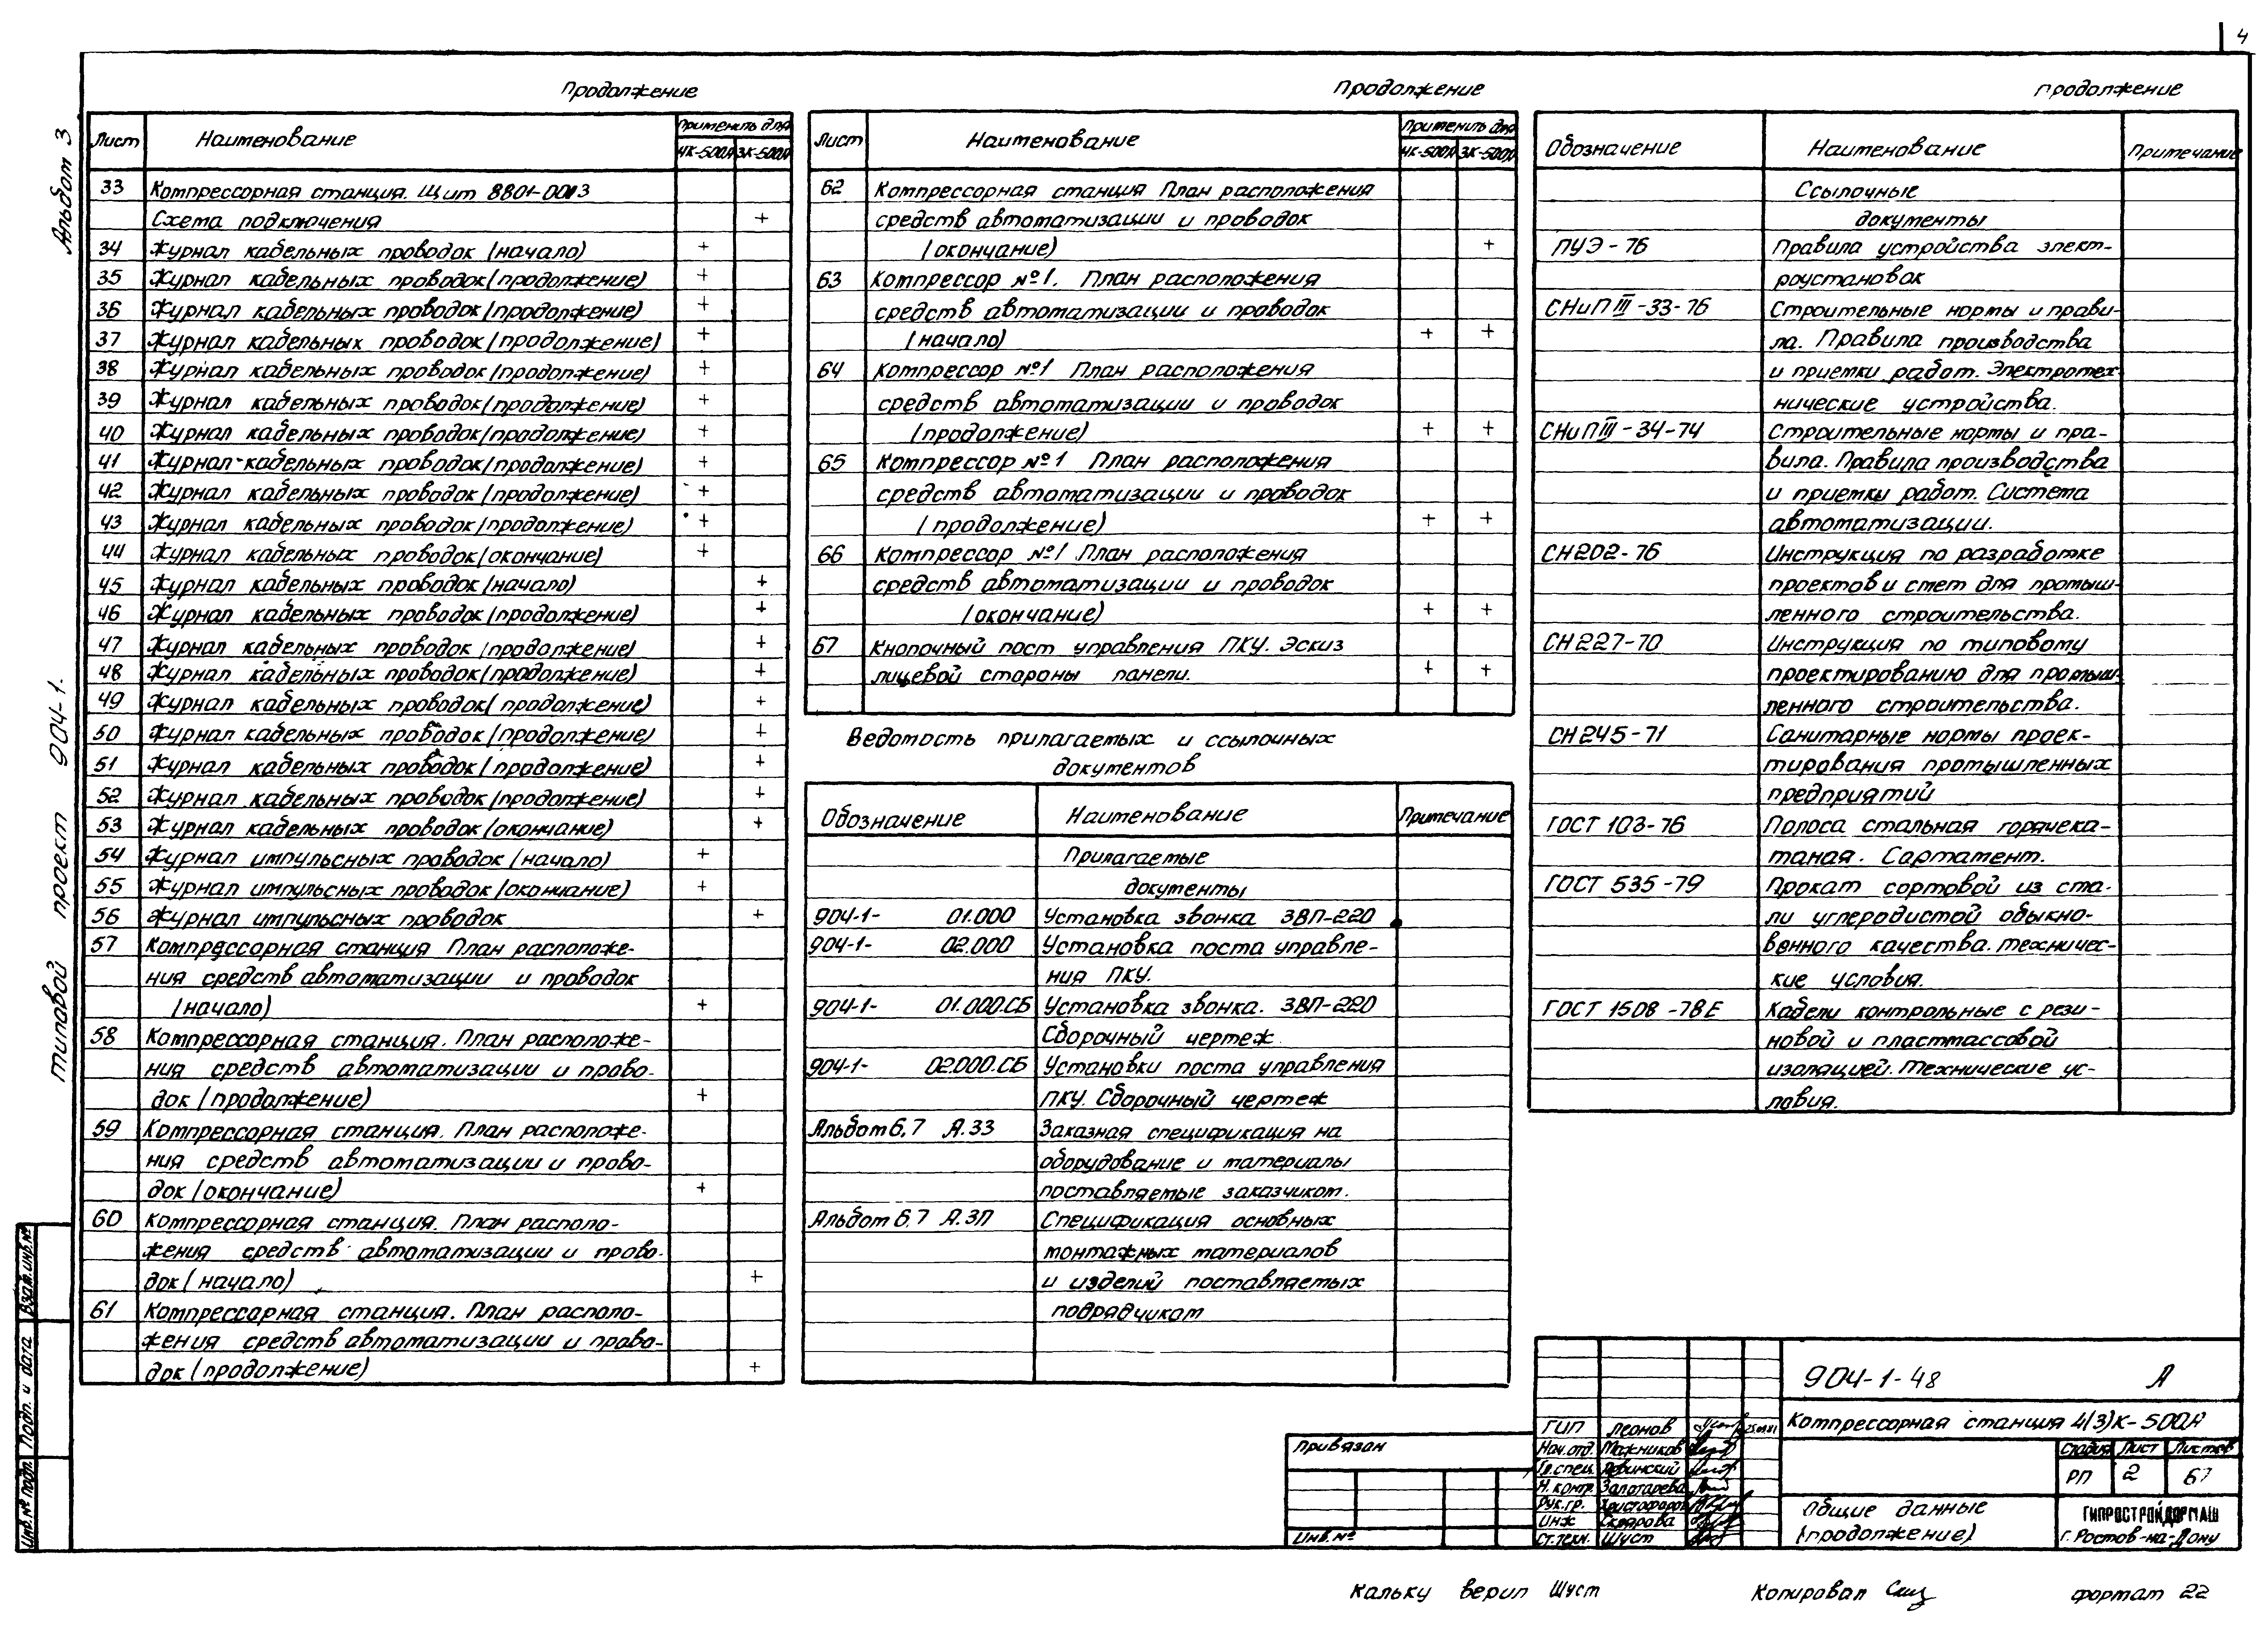 4
Альбом 3
типовой проект 904-1.
Продолжение
Лист Наименование Применить для
4К-500А 3К-500А
33 Компрессорная станция. Щит 8801-0013
Схема подключения +
34 Журнал кабельных проводок (начало) +
35 Журнал кабельных проводок (продолжение) +
36 Журнал кабельных проводок (продолжение) +
37 Журнал кабельных проводок (продолжение) +
38 Журнал кабельных проводок (продолжение) +
39 Журнал кабельных проводок (продолжение) +
40 Журнал кабельных проводок (продолжение) +
41 Журнал кабельных проводок (продолжение) +
42 Журнал кабельных проводок (продолжение) +
43 Журнал кабельных проводок (продолжение) +
44 Журнал кабельных проводок (окончание) +
45 Журнал кабельных проводок (начало) +
46 Журнал кабельных проводок (продолжение) +
47 Журнал кабельных проводок (продолжение) +
48 Журнал кабельных проводок (продолжение) +
49 Журнал кабельных проводок (продолжение) +
50 Журнал кабельных проводок (продолжение) +
51 Журнал кабельных проводок (продолжение) +
52 Журнал кабельных проводок (продолжение) +
53 Журнал кабельных проводок (окончание) +
54 Журнал импульсных проводок (начало) +
55 Журнал импульсных проводок (окончание) +
56 Журнал импульсных проводок +
57 Компрессорная станция План расположе-
ния средств автоматизации и проводок
(начало) +
58 Компрессорная станция. План расположе-
ния средств автоматизации и прово-
док (продолжение) +
59 Компрессорная станция. План расположе-
ния средств автоматизации и прово-
док (окончание) +
60 Компрессорная станция. План располо-
жения средств автоматизации и прово-
док (начало) +
61 Компрессорная станция. План располо-
жения средств автоматизации и прово-
док (продолжение) +
Продолжение
Лист Наименование Применить для
4К-500А 3К-500А
62 Компрессорная станция План расположения
средств автоматизации и проводок
(окончание) +
63 Компрессор №1. План расположения
средств автоматизации и проводок
(начало) + +
64 Компрессор №1 План расположения
средств автоматизации и проводок
(продолжение) + +
65 Компрессор №1 План расположения
средств автоматизации и проводок
(продолжение) + +
66 Компрессор №1 План расположения
средств автоматизации и проводок
(окончание) + +
67 Кнопочный пост управления ПКУ. Эскиз
лицевой стороны панели. + +
Ведомость прилагаемых и ссылочных
документов
Обозначение Наименование Примечание
Прилагаемые
документы
904-1- 01.000 Установка звонка ЗВП-220
904-1- 02.000 Установка поста управле-
ния ПКУ.
904-1- 01.000.СБ Установка звонка. ЗВП-220
Сборочный чертеж
904-1- 02.000.СБ Установки поста управления
ПКУ. Сборочный чертеж
Альбом 6,7 А.ЗЗ Заказная спецификация на
оборудование и материалы
поставляемые заказчиком.
Альбом 6.7 А.ЗП Спецификация основных
монтажных материалов
и изделий поставляемых
подрядчикам
продолжение
Обозначение Наименование Примечание
Ссылочные
документы
ПУЭ-76 Правила устройства элект-
роустановок
СНиП III-33-76 Строительные нормы и прави-
ла. Правила производства
и приемки работ. Электротех-
нические устройства.
СНиП III-34-74 Строительные нормы и пра-
вила. Правила производства
и приемки работ. Система
автоматизации.
СН202-76 Инструкция по разработке
проектов и смет для промыш-
ленного строительства.
СН227-70 Инструкция по типовому
проектированию для промыш-
ленного строительства.
СН245-71 Санитарные нормы проек-
тирования промышленных
предприятий
ГОСТ 103-76 Полоса стальная горячека-
таная. Сортамент.
ГОСТ 535-79 Прокат сортовой из ста-
ли углеродистой обыкно-
венного качества. техничес-
кие условия.
ГОСТ 1508-78Е Кабели контрольные с рези-
новой и пластмассовой
изоляцией. Технические ус-
ловия.
Взам.инв.№
Подп. и дата
Инв.№ подл.
Привязан
Инв.№
904-1-48 А
ГИП Леонов
Компрессорная станция 4(3)К-500А
Нач.отд. Мажников
Гл.спец.
Н.контр. Золотарева
Рук.гр. Христофоров
Инж Склярова
Ст.техн. Шуст
Стадия Лист Листов
РП 2 67
Общие данные
(продолжение)
ГИПРОСТРОЙДОРМАШ
г.Ростов-на-Дону
Кальку верил Шуст Копировал формат 22